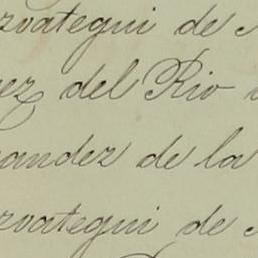 rvategui de
ez del Rio
andez de la
rvategui de